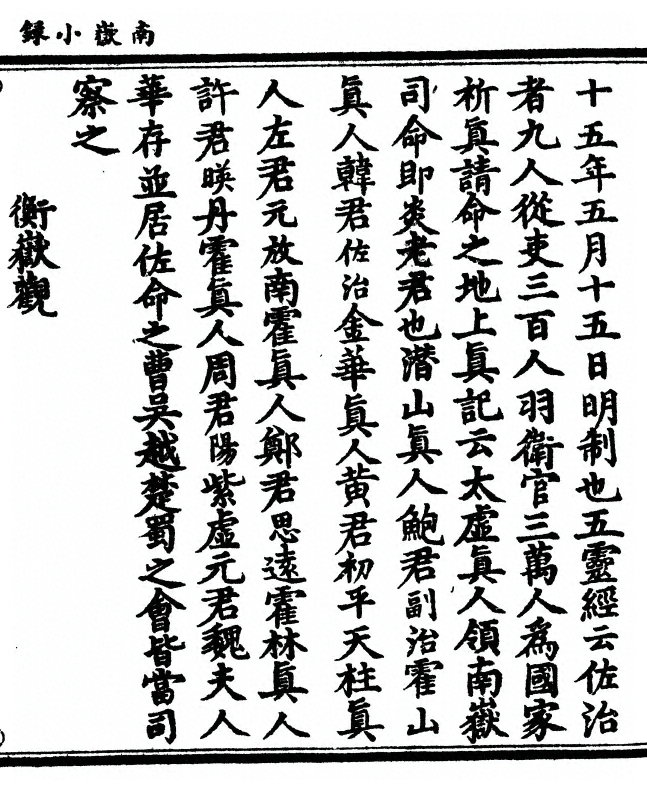 南嶽小録
十五年五月十五日明制也五靈經云佐治
者九人從吏三百人羽衛官三萬人爲國家
祈眞請命之地上眞記云太虛眞人領南嶽
司命即炎老君也潛山眞人鮑君副治霍山
眞人韓君佐治金華眞人黄君初平天柱眞
人左君元放南霍眞人鄭君思遠霍林眞人
許君暎丹霍眞人周君陽紫虛元君魏夫人
華存並居佐命之曹吳越楚蜀之會皆當司
察之
衡嶽觀